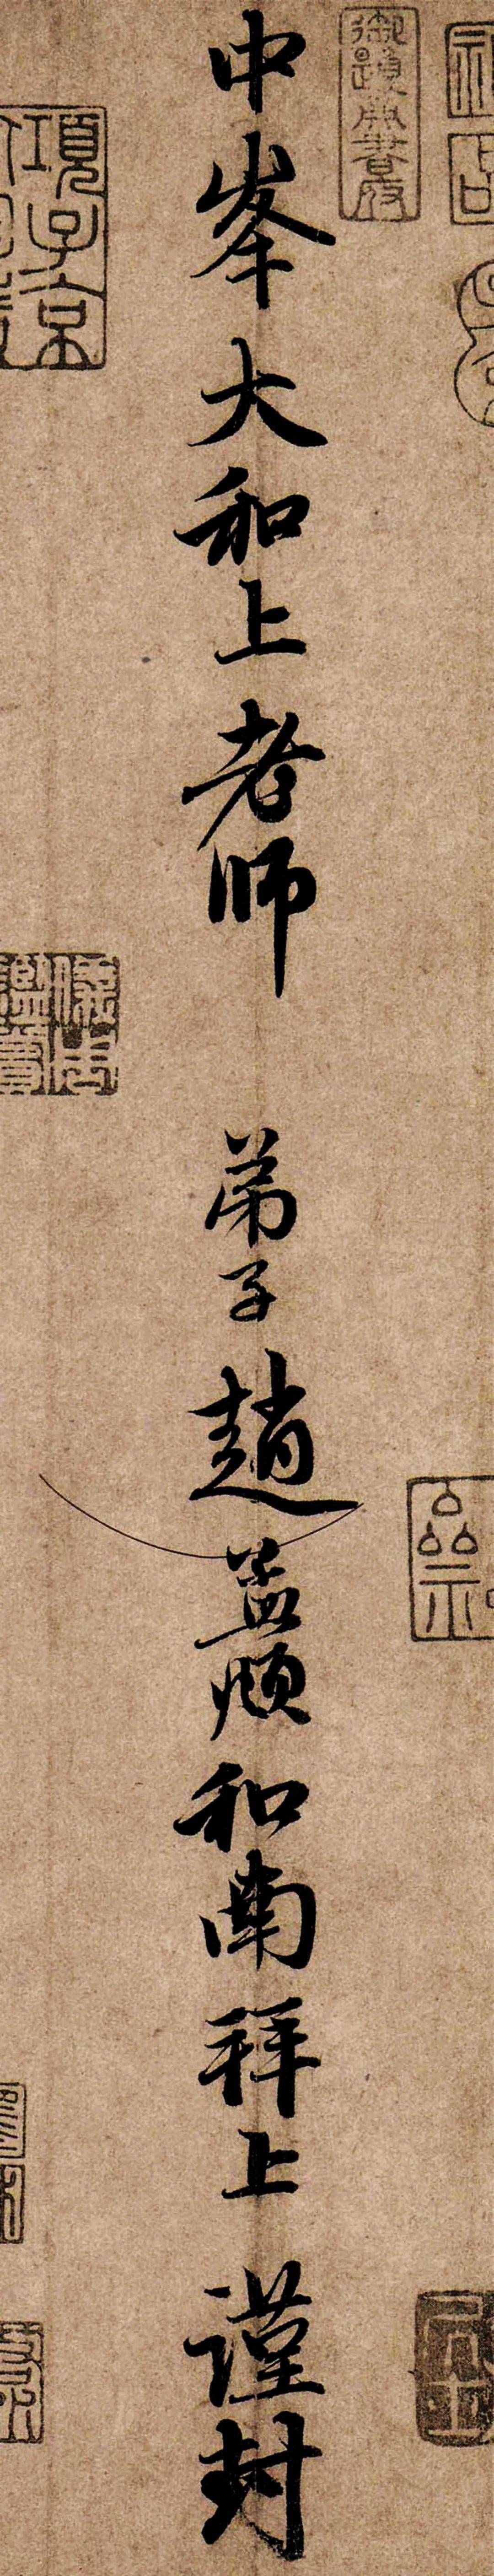 中峯大和上老师 弟子趙孟頫和南拜上 謹封
項子京